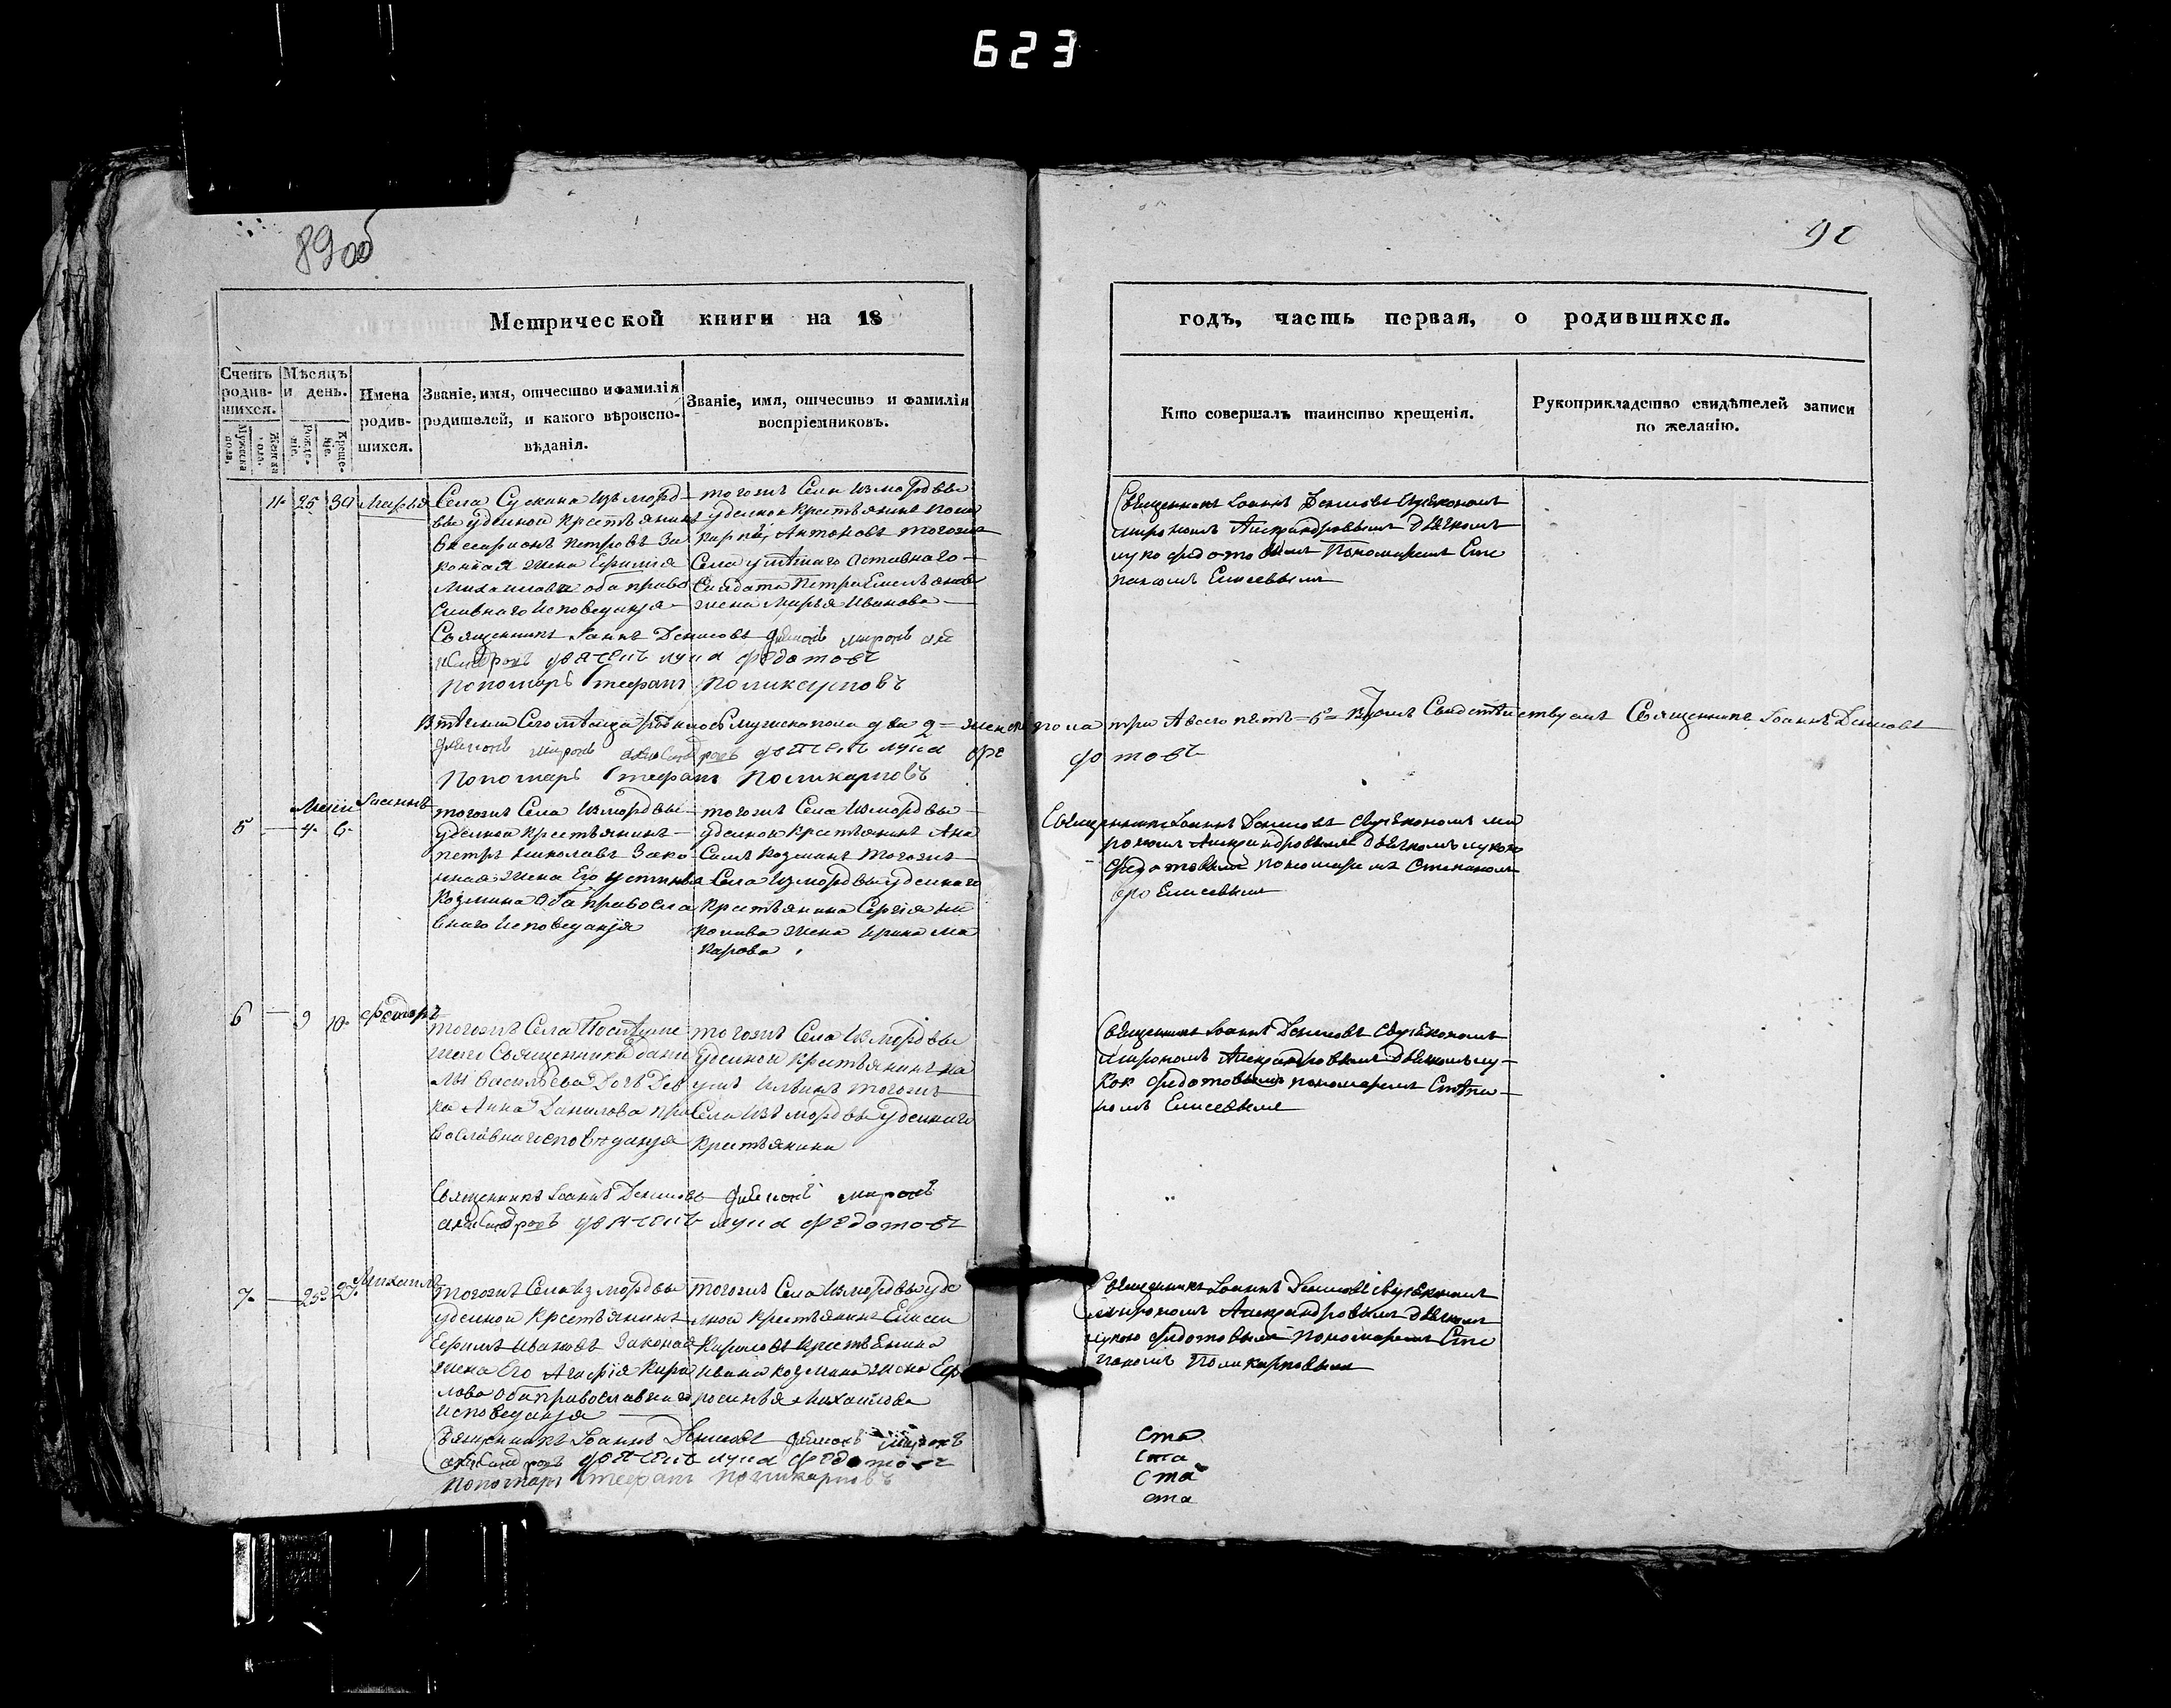 623
89об
90
Метрической книги на 18
годъ, часть первая, о родившихся.
Счетъ родив-шихся.
Мѣсяцъ и день.
Имена родив-шихся.
Званіе, имя, отчество и фамилія родителей, и какого вѣроиспо-вѣданія.
Званіе, имя, отчество и фамилія воспріемниковъ.
Кто совершалъ таинство крещенія.
Рукоприкладство свидѣтелей записи по желанію.
Мужеска пола.
Женска пола.
Рожде-ніе.
Креще-ніе.
11 25 30 Марья
Села Сускана Изъ морд
вы удельной крестьянинъ
Виссарионъ Петровъ За
конная жена Ефимия
Михаилова оба право
славнаго Исповеданія
тогожъ Села Измордвы
удельной Крестьянинъ Поли
карпъ Антоновъ тогожъ
Села
Салдата Петра Емельянова
жена Марья Иванова
Священникъ Іоаннъ Денисовъ
Мирономъ Александровымъ Дьячкомъ
Лукою Федотовымъ Пономаремъ Сте
паномъ Елисеевымъ
Священникъ Іоаннъ Денисовъ диаконъ миронъ але
ксандровъ дьячекъ лука федотовъ
пономарь Стефанъ Поликарповъ
родилось мужеска пола два 2 женска пола три А всего пять 5 въ томъ Свидетельствуемъ Священникъ Іоаннъ Денисовъ
диаконъ миронъ александровъ дьячекъ лука фе
дотовъ
Пономарь Стефанъ Поликарповъ
Маии
5 4 6 Іоаннъ
тогожъ Села Измордвы
удельной крестьянинъ
петръ Николаевъ Зако
нная жена Его устинья
Козмина Оба правосла
внаго Исповеданія
тогожъ Села Измордвы
удельной крестьянинъ
Козминъ тогожъ
Села Измордвы удельнаго
Крестьянина Сергія Ни
колаева жена Ирина Ма
карова
Священникъ Іоаннъ Денисовъ Сдиякономъ ми
рономъ Александровымъ Дьячкомъ лукою
Федотовымъ пономаремъ Степаном
Елисеевым
6 9 10 Федоръ
тогожъ Села
Священника Дани
лы Васильева Дочь Дев
ка Анна Данилова пра
вославнаго исповѣданія
тогожъ Села Измордвы
удельной Крестьянинъ На
умъ Ильинъ тогожъ
Села Изъ мордвы удельнаго
крестьянина
Священникъ Іоаннъ Денисовъ Сдиякономъ
мирономъ Александровымъ Дьячкомъ лу
кою Федотовымъ пономаремъ Степа
номъ Елисеевым
Священникъ Іоаннъ Денисовъ диаконъ миронъ
александровъ дьячекъ лука федотовъ
7 25 27 Михаилъ
тогожъ Села Измордвы
удельной крестьянинъ
Ефимъ Ивановъ Законая
жена Его Агафія Кири
лова оба православнаго
исповеданія
тогожъ Села Измордвы уде
льной крестьянинъ Елисеи
Кириловъ крестьянина
Ивана Козмина жена Еф
росинья Михаилова
Священникъ Іоаннъ Денисовъ Сдиякономъ
мирономъ Александровымъ Дьячкомъ
лукою Федотовымъ пономаремъ Сте
паномъ Поликарповымъ
Священникъ Іоаннъ Денисовъ диаконъ миронъ
александровъ дьячекъ лука федотовъ
пономарь Стефанъ поликарповъ
Ста
Ста
Ста
ста